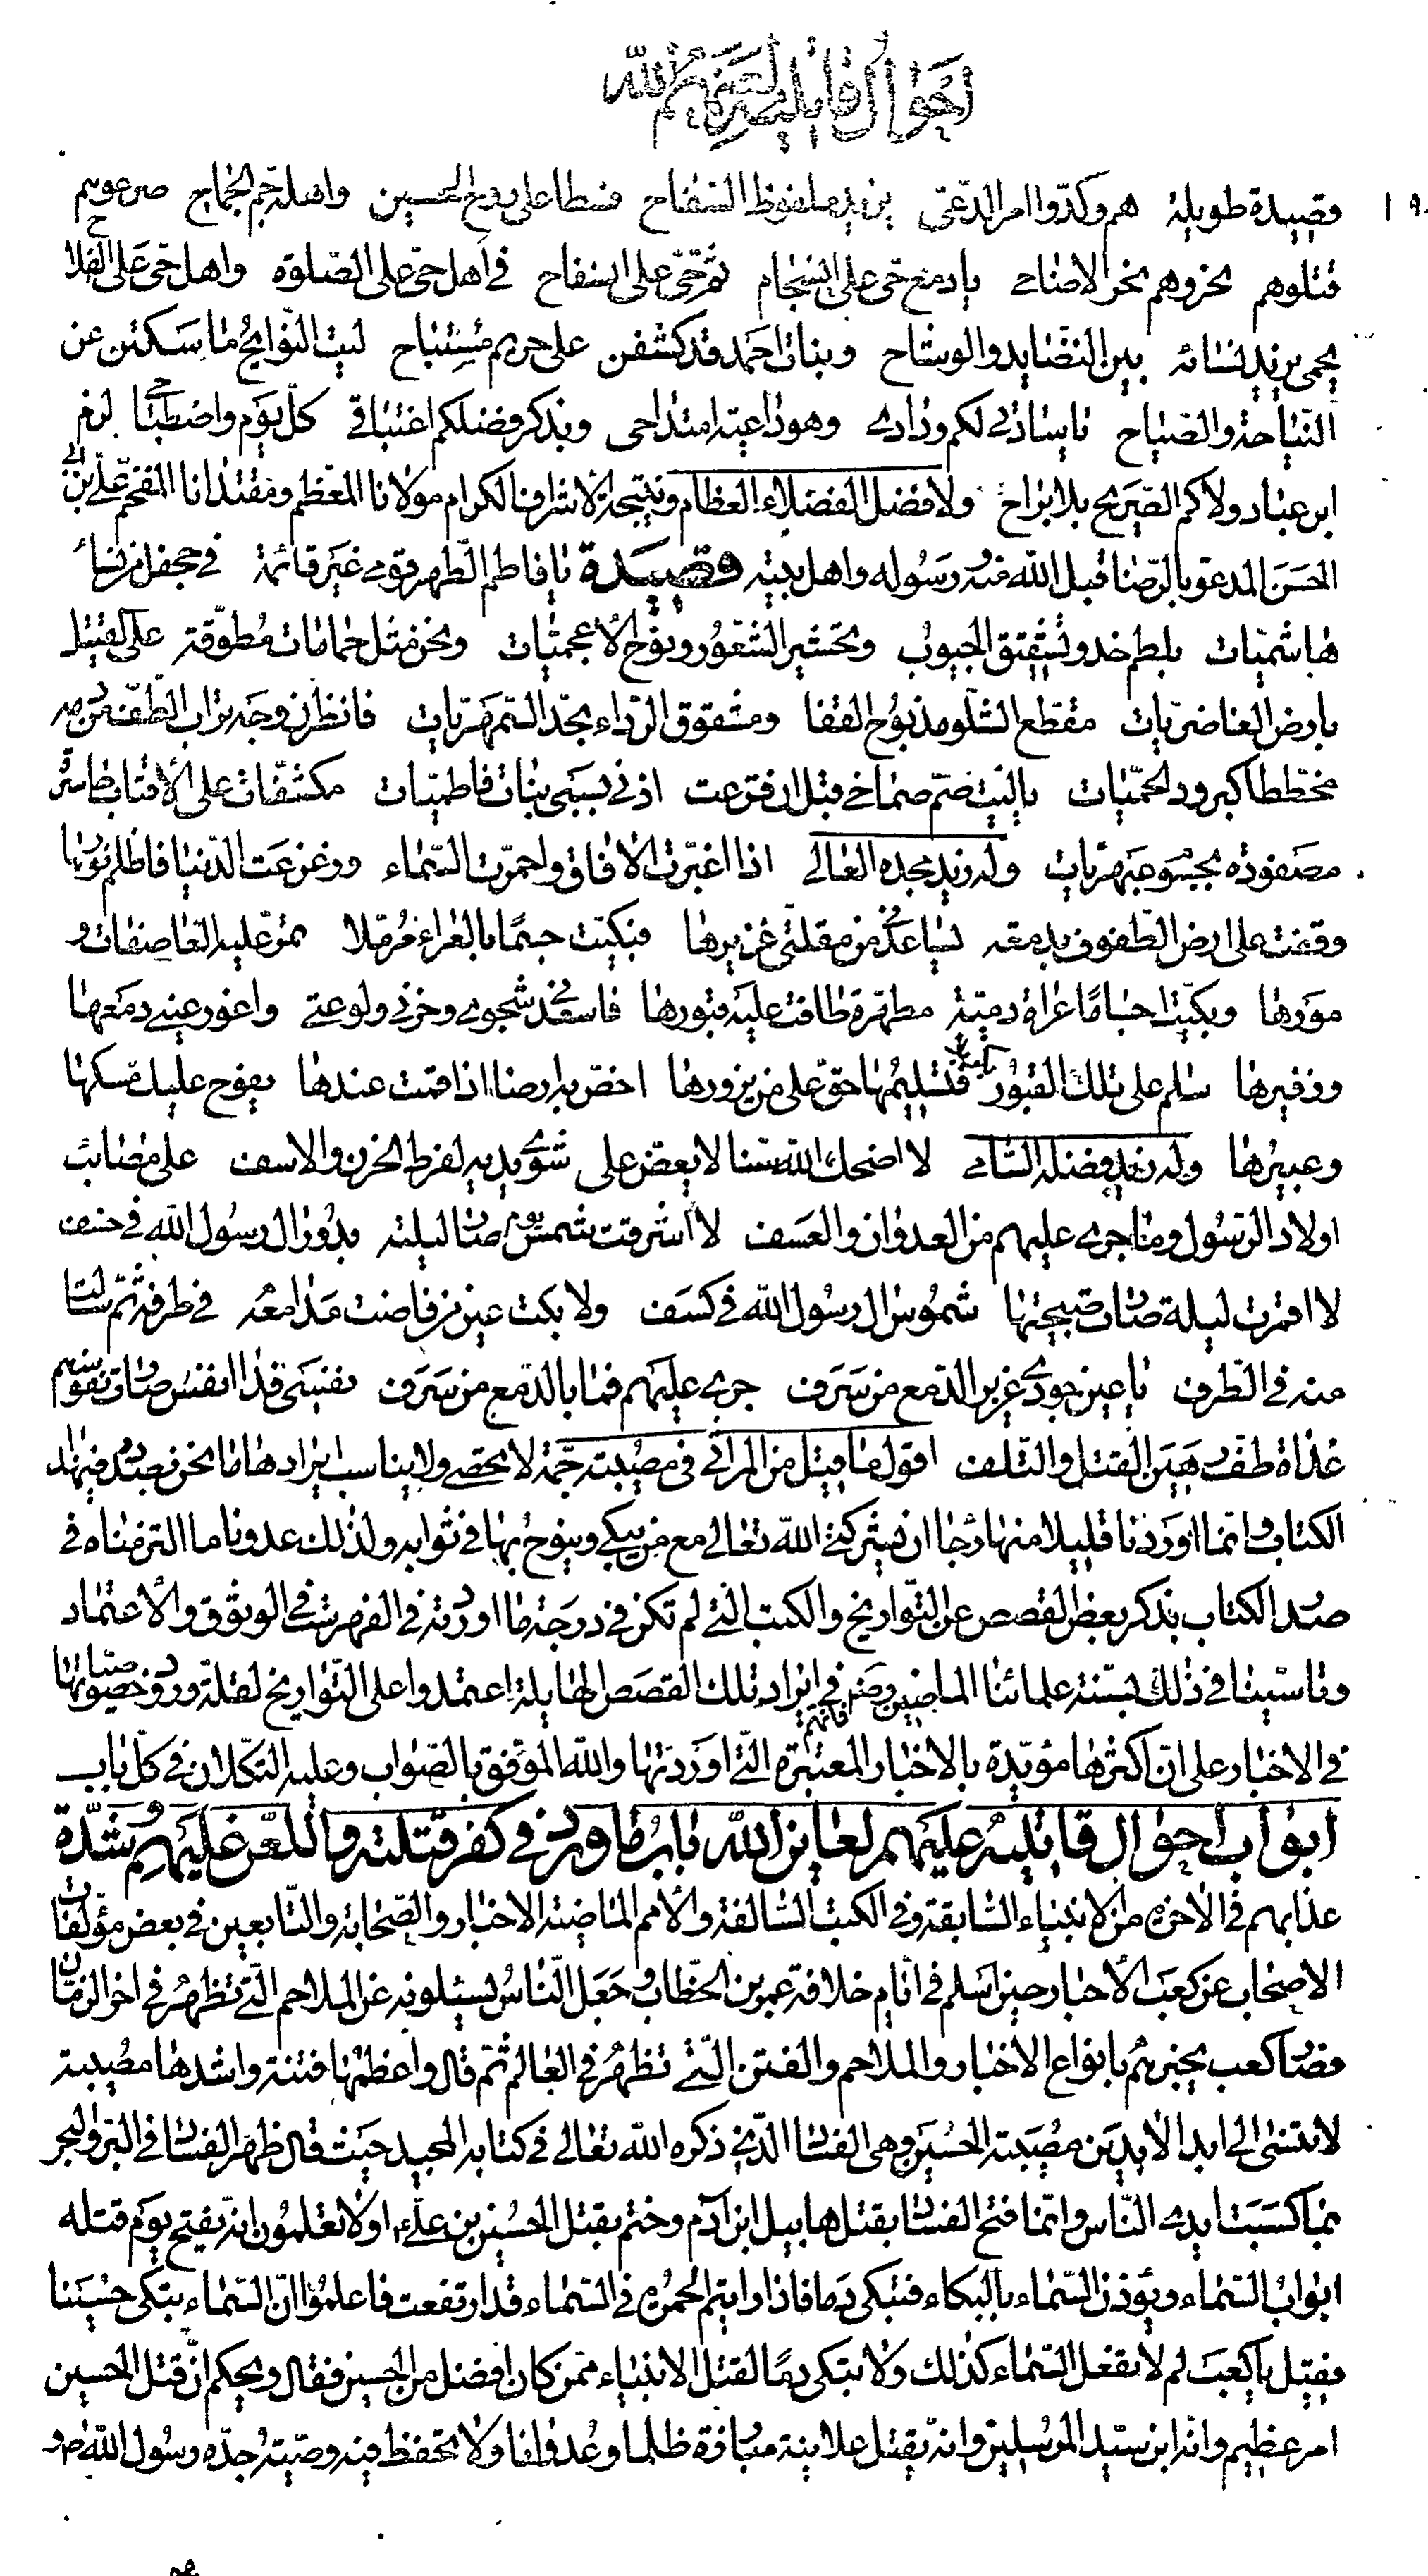 احوال قاتليه لعنهم الله
١٩٠
قصيدة طويلة هم وكدوا امر الدعى يزيد ملفوظ السفاح فسطا على روح الحسين واهله جم الجماح صرعوهم
قتلوهم نحروهم نحر الاضاحى يا دمع حى على انسجام ثم حى على انسفاح فى اهل حى على الصلوة واهل حى على الفلاح
يحمى يزيد نسائه بين النضايد والوشاح وبنات احمد قد كشفن على حريم مستباح ليت النوايح ما سكتن عن
النياحة والصياح يا سادتى لكم ودادى وهو داعية امتداحى وبذكر فضلكم اغتباقى كل يوم واصطباحى لزم
ابن عباد ولاكم الصريح بلا براح ولافضل الفضلاء العظام ونتيجة الاشراف الكرام مولانا المعظم ومقتدانا المفخم على بن
الحسن المدعو بالرضا قبل الله منه ورسوله واهل بيته قصيدة يا فاطم الطهر قومى غير قائمة فى محفل من نساء
هاشميات بلطم خد وتشقيق الجيوب وتحشير الشعور ونوح الاعجميات ونحن مثل حمامات مطوقة على القتيل
بارض الغاضريات مقطع الشلو مذبوح القفا ومشقوق الرداء بحد السمهريات فانظرن وجه تراب الطف من دمه
مخططا كبرود الحميات يا ليت ضم صماخى قبل ان قرعت اذنى بسبى بنات فاطميات مكشفات على الاقتاب حاسرة
مصفودة بحبشو عبهريات وله زيد مجده العالى اذا اغبرت الافاق واحمرت السماء وزعزعت الدنيا فاظلم نورها
وقفت على ارض الطفوف بدمعة يساعدنى من مقلتى غزيرها فبكيت جسما بالعراء مرملا تمر عليه العاصفات و
مورها وبكيت اجساما عراة دمية مطهرة طافت عليه قبورها فاسعدنى شجوى وحزنى ولوعتى واعور عينى دمعها
وزفيرها سلم على تلك القبور بكربلا فتسليمها حق على من يزورها اخص بها ارضا اذا قمت عندها يفوح عليك مسكها
وعبيرها وله زيد فضله السامى لا اضحك الله سنا لا يعض على شوى يديه لفرط الحزن والاسف على مصائب
اولاد الرسول وما جرى عليهم من العدوان والعسف لا اشرقت شمس يوم صار ليلته بدور ال رسول الله فى خسف
لا اقمرت ليلة صارت صبيحتها شموس ال رسول الله فى كسف ولا بكت عين من فاضت مدامعه فى طرفه ثم سالت
منه فى الطرف يا عين جودى غزير الدمع من سرف جرى عليهم فما بالدمع من سرف نفسى فدا انفس صارت نفوسهم
غداة طف بين القتل والتلف اقول ما قيل من المراثى فى مصيبته جمة لا يحصى ولا يناسب ايرادها ما نحن بصدده فى هذا
الكتاب وانما اوردنا قليلا منها رجاء ان يشركنى الله تعالى مع من يبكى وينوح بها فى ثوابه ولذلك عدونا ما التزمناه فى
صدر الكتاب بذكر بعض القصص عن التواريخ والكتب التى لم تكن فى درجة ما اوردته فى الفهرست فى الوثوق والاعتماد
وتاسينا فى ذلك بسنة علمائنا الماضين رض فانهم فى ايراد تلك القصص الهايلة اعتمدوا على التواريخ لقلة ورود خصوصياتها
فى الاخبار على ان اكثرها مؤيدة بالاخبار المعتبرة التى اوردتها والله الموفق بالصواب وعليه التكلان فى كل باب
ابواب احوال قاتليه عليهم لعاين الله باب ما ورد فى كفر قتلته واللعن عليهم وشدة
عذابهم فى الاخرة من الانبياء السابقة وفى الكتب السالفة والامم الماضية الاخبار والصحابة والتابعين فى بعض مؤلفات
الاصحاب عن كعب الاحبار حين اسلم فى ايام خلافة عمر بن الخطاب وجعل الناس يسئلونه عن الملاحم التى تظهر فى اخر الزمان
فصار كعب يخبرهم بانواع الاخبار والملاحم والفتن التى تظهر فى العالم ثم قال واعظمها فتنة واشدها مصيبة
لا تنسى الى ابد الابدين مصيبة الحسين وهى الفساد الذى ذكره الله تعالى فى كتابه المجيد حيث قال ظهر الفساد فى البر والبحر
بما كسبت ايدى الناس وانما فتح الفساد بقتل هابيل ابن آدم وختم بقتل الحسين بن على اولا تعلمون انه يفتح يوم قتله
ابواب السماء ويؤذن السماء بالبكاء فتبكى دما فاذا رايتم الحمرة فى السماء قد ارتفعت فاعلموا ان السماء تبكى حسينا
فقيل يا كعب لم لا تفعل السماء كذلك ولا تبكى دما لقتل الانبياء ممن كان افضل من الحسين فقال ويحكم ان قتل الحسين
امر عظيم وانه ابن سيد المرسلين وانه يقتل علانية مبارزة ظلما وعدوانا ولا تحفظ فيه وصية جده رسول الله ص و